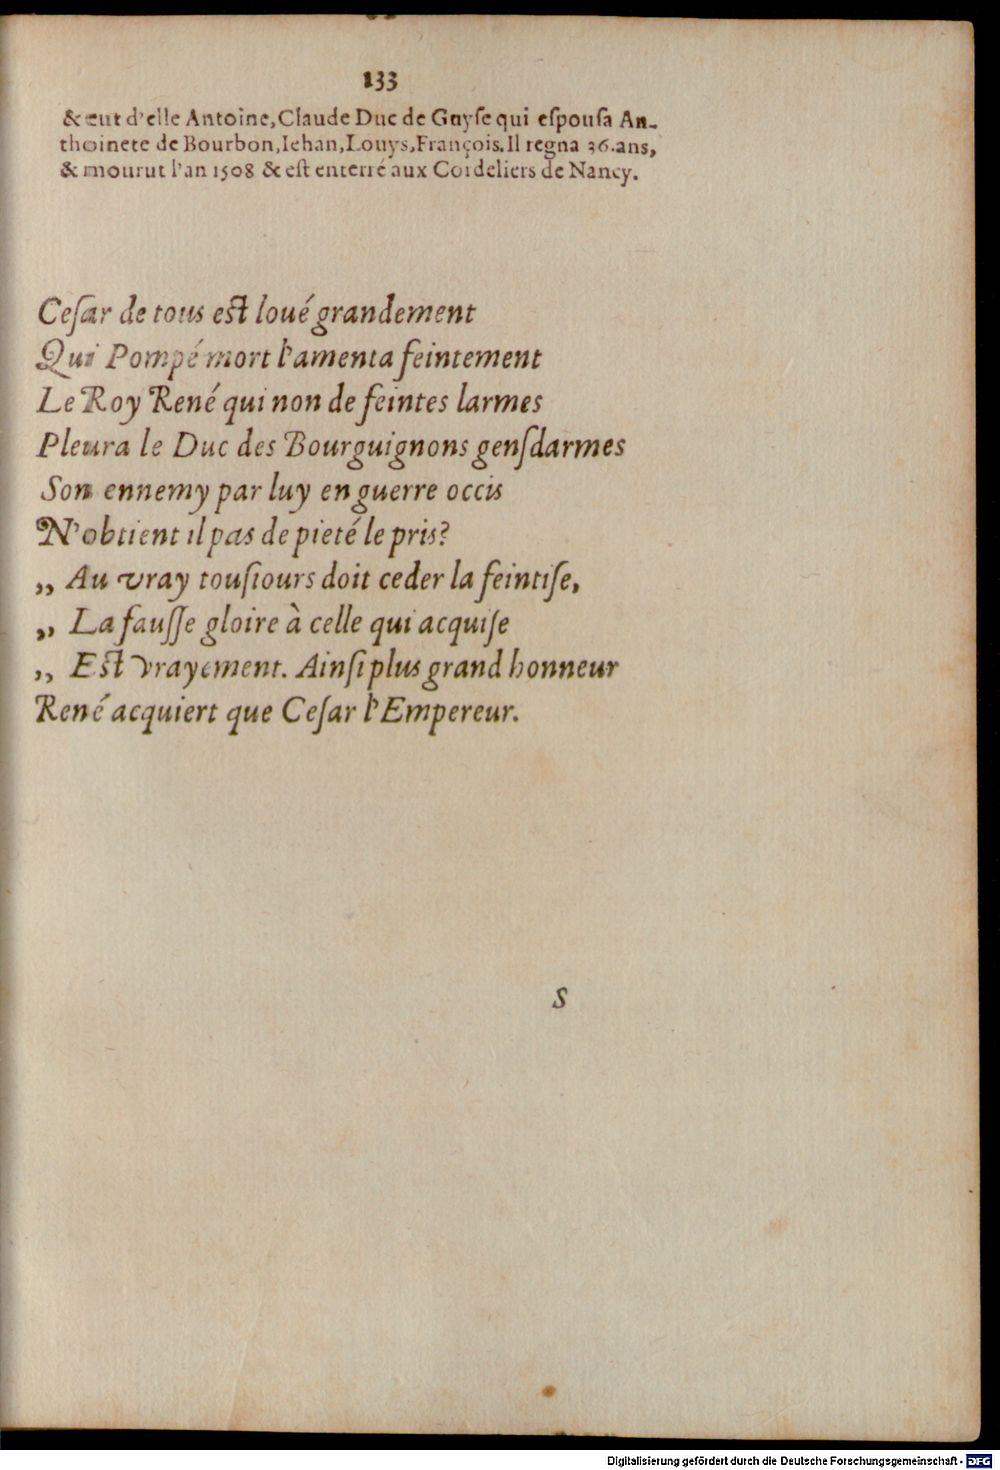 133
& eut d'elle Antoine, Claude Duc de Guyſe qui eſpouſa An-
thoinete de Bourbon, Iehan, Louys, François. Il regna 36. ans,
& mourut l'an 1508 & eſt enterré aux Cordeliers de Nancy.
Ceſar de tous eſt loué grandement
Qui Pompé mort l'amenta feintement
Le Roy René qui non de feintes larmes
Pleura le Duc des Bourguignons genſdarmes
Son ennemy par luy en guerre occis
N'obtient il pas de pieté le pris?
,, Au vray touſiours doit ceder la feintiſe,
,, La fauſſe gloire à celle qui acquiſe
,, Eſt vrayement. Ainſi plus grand honneur
René acquiert que Ceſar l'Empereur.
S
Digitalisierung gefördert durch die Deutsche Forschungsgemeinschaft - DFG